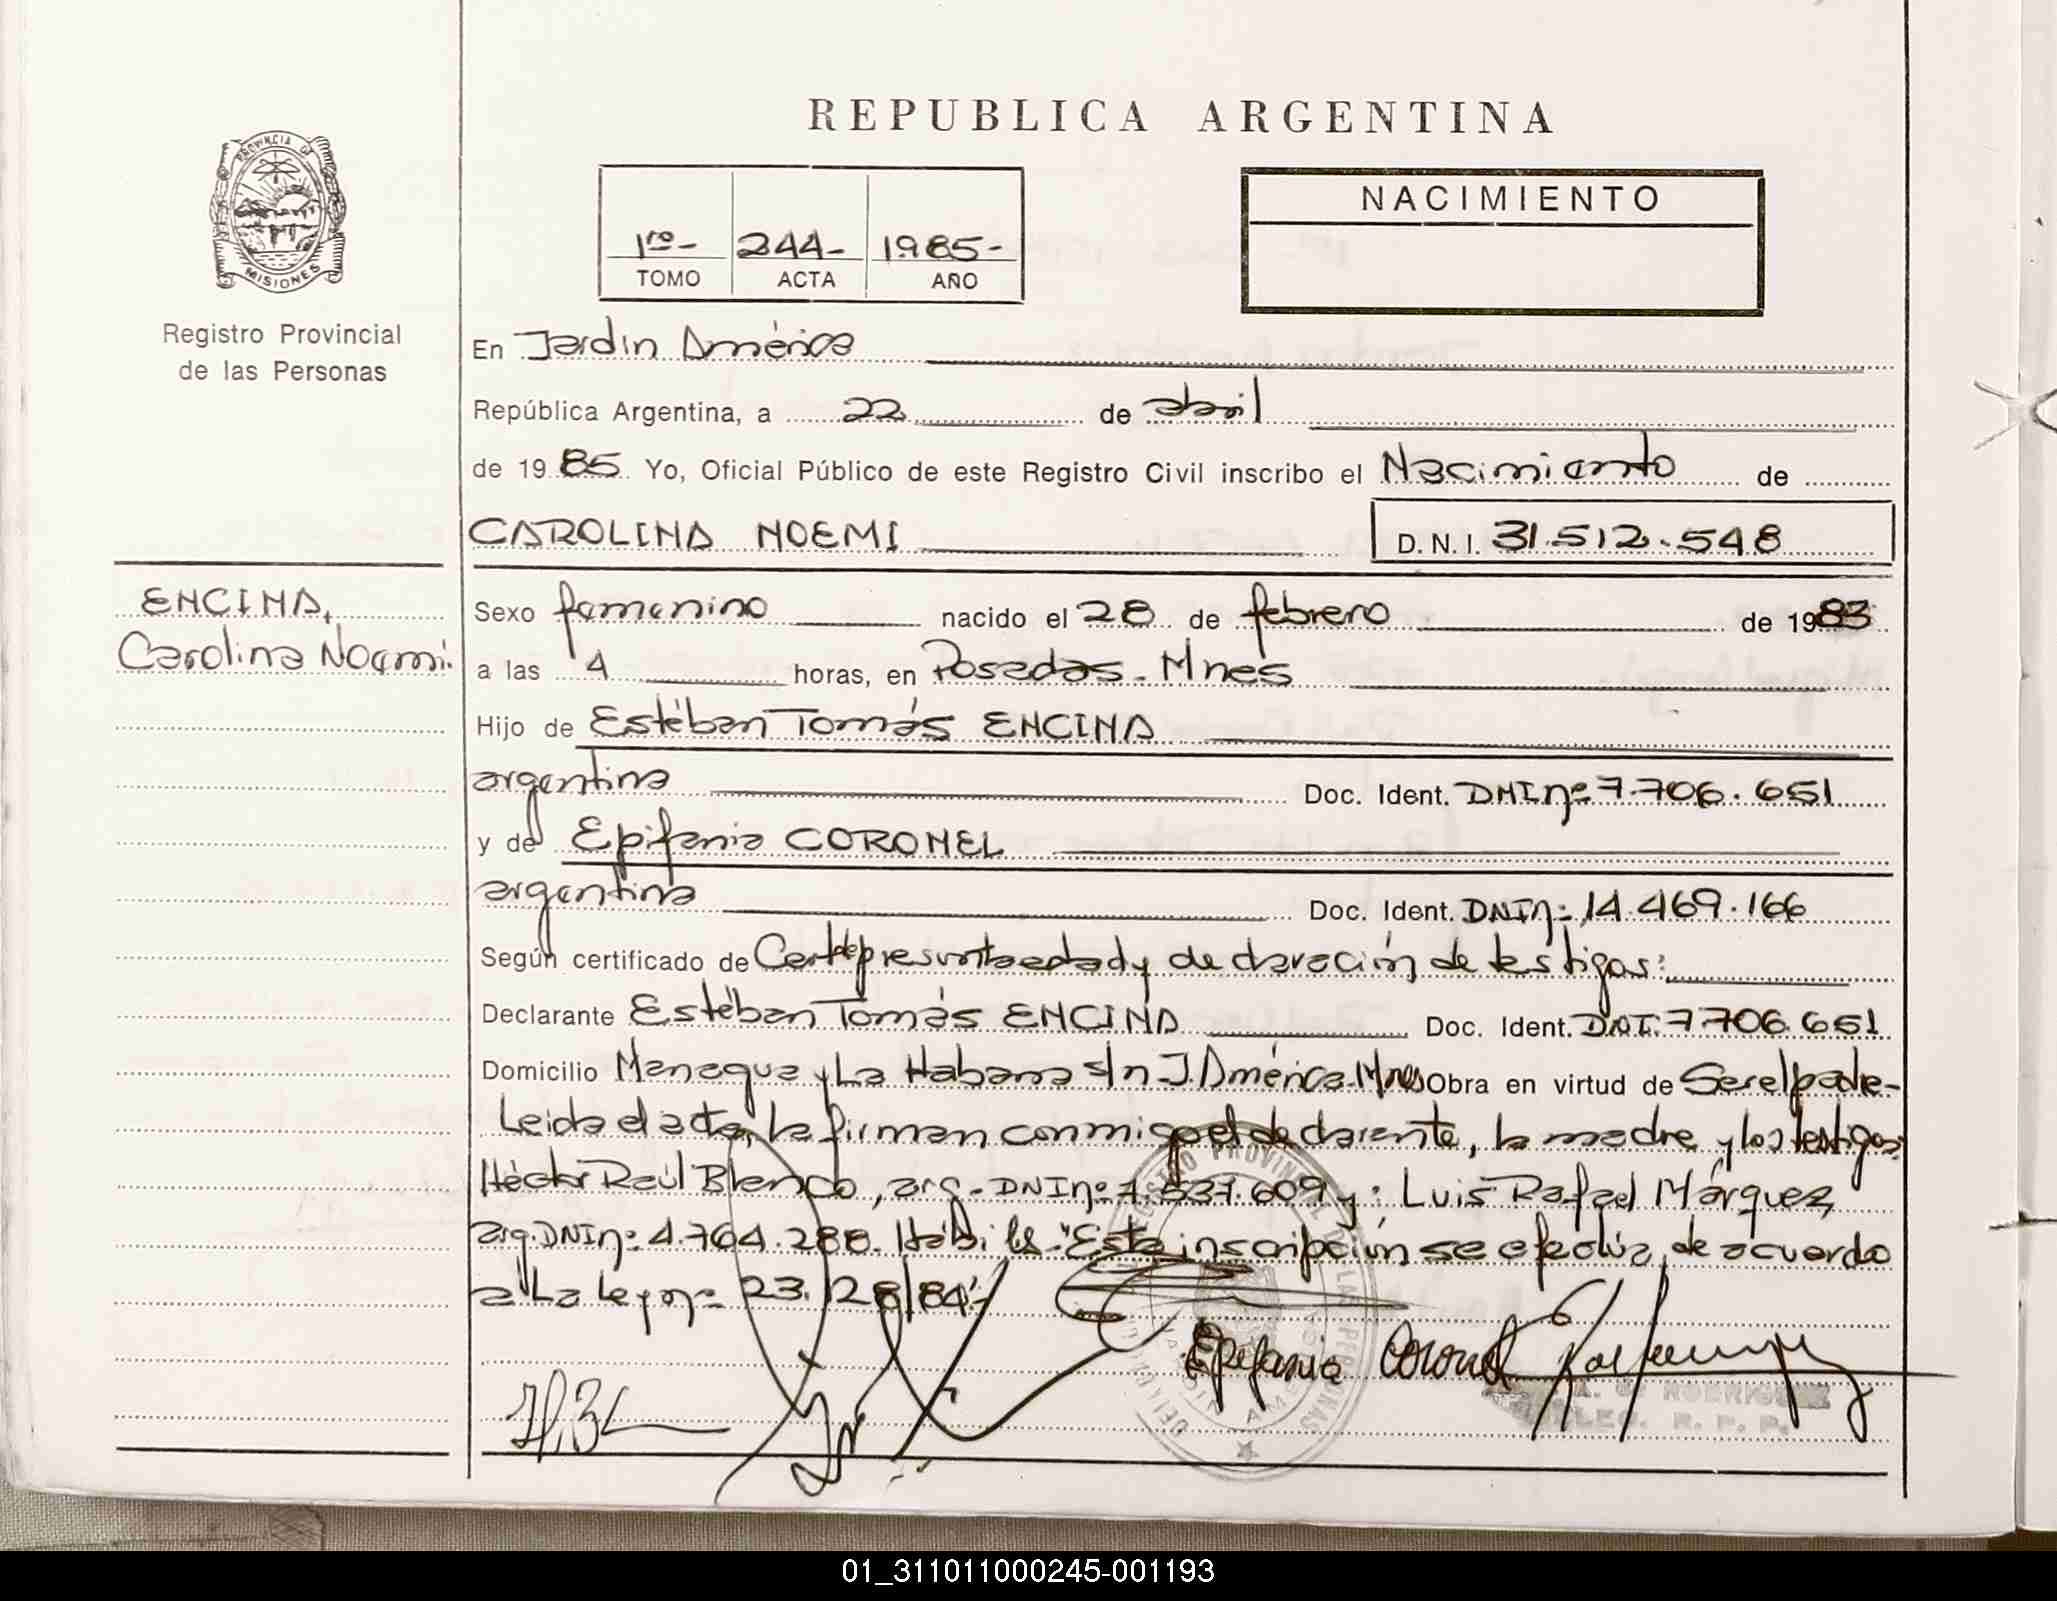 REPUBLICA ARGENTINA
PROVINCIA DE
MISIONES
Registro Provincial
de las Personas
1ro- 244- 1985-
TOMO ACTA AÑO
NACIMIENTO
En Jardín América
República Argentina, a 22 de abril
de 1985 Yo, Oficial Público de este Registro Civil inscribo el Nacimiento de
CAROLINA NOEMI D.N.I. 31.512.548
ENCINA,
Carolina Noemi.
Sexo femenino nacido el 28 de febrero de 1983
a las 4 horas, en Posadas - Mnes
Hijo de Estéban Tomás ENCINA
argentina Doc. Ident. DNI nº 7.706.651
y de Epifania CORONEL
argentina Doc. Ident. DNI nº 14.469.166
Según certificado de Cert de presunta edad y declaración de testigos:
Declarante Estéban Tomás ENCINA Doc. Ident. DNI. 7.706.651
Domicilio Managua y La Habana s/n - J. América - Mnes Obra en virtud de Ser el padre -
Leida el acta, la firman conmigo el declarante, la madre y los testigos:
Héctor Raúl Blanco, arg - DNI nº 7.537.609 y: Luis Rafael Márquez,
arg. DNI nº 4.764.288. Hábiles - "Esta inscripción se efectúa, de acuerdo
a La Ley nº 23.128/84" -
Epifania Coronel
REGISTRO PROVINCIAL DE LAS PERSONAS
JARDIN AMERICA
DELEG. R. P. P.
01_311011000245-001193